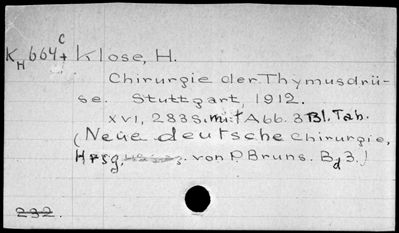 K H 664 c + Klose, H.
Chirurgie der Thymusdrü-
se. Stuttgart, 1912.
XVI, 283 S. mit Abb. 3 Bl. Tab.
(Neue deutsche Chirurgie,
Hrsg. von P. Bruns. Bd 3.)
232.